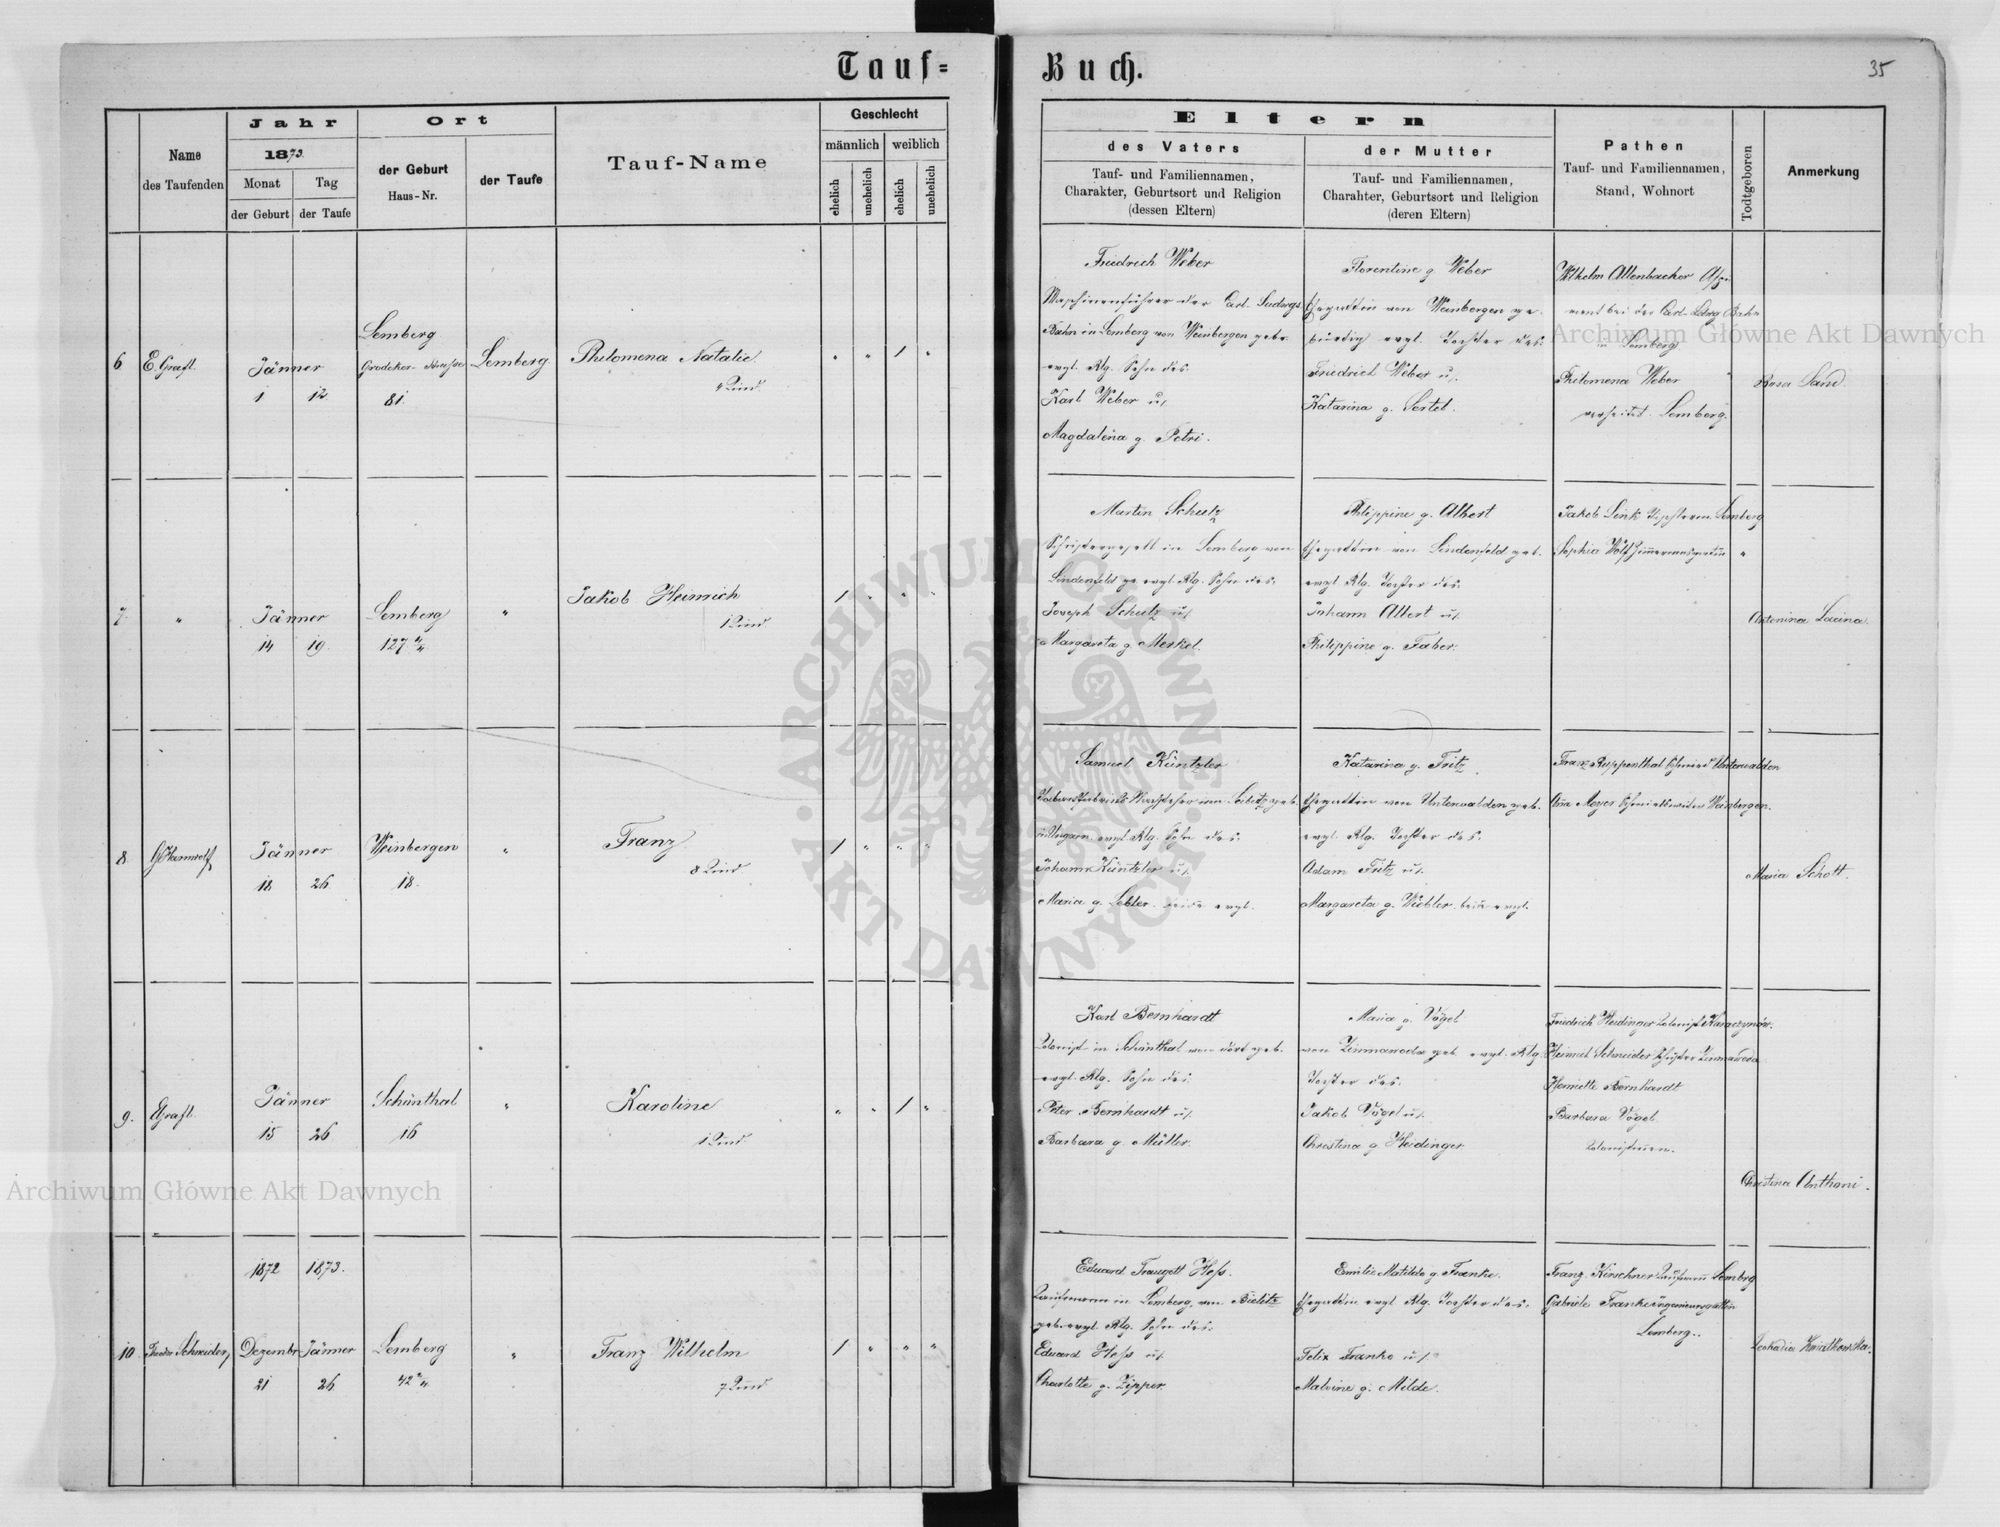 Tauf=
Buch.
35
Name
des Taufenden
Jahr
1873.
Monat
Tag
der Geburt
der Taufe
Ort
der Geburt
Haus-Nr.
der Taufe
Tauf-Name
Geschlecht
männlich
weiblich
ehelich
unehelich
ehelich
unehelich
Eltern
des Vaters
Tauf- und Familiennamen,
Charakter, Geburtsort und Religion
(dessen Eltern)
der Mutter
Tauf- und Familiennamen,
Charahter, Geburtsort und Religion
(deren Eltern)
Pathen
Tauf- und Familiennamen,
Stand, Wohnort
Todtgeboren
Anmerkung
6
E. Grafl.
Jänner
1
12
Lemberg
Grodeker-
81.
Lemberg
Philomena Natalie
4 Kind
" " / "
Friedrich Weber
Maschinenführer der Carl-Ludwigs
Bahn in Lemberg von Weinbergen gebr.
evgl. Rlg. Sohn des:
Karl Weber u/.
Magdalena g. Petri.
Florentine g. Weber
Ehegattin von Weinbergen ge-
bürtig evgl. Tochter des:
Friedrich Weber u/.
Katarina g. Sertel.
Wilhelm Allenbacher
bei der Carl-Ldwg Bahn
in Lemberg
Philomena Weber "
Lemberg.
Rosa Sand.
7.
"
Jänner
14
19.
Lemberg
127 4/4
"
Jakob Heinrich
1 Kind
/ " " "
Martin Schulz
in Lemberg von
Lindenfeld ge. evgl. Rlg. Sohn des:
Joseph Schulz u/.
Margareta g. Merkel.
Philippine g. Albert
Ehegattin von Lindenfeld geb.
evgl. Rlg. Tochter des:
Johann Albert u/.
Philippine g. Faber.
Jakob Link Lemberg
Sophia Wolf "
Antonina Lacina.
8.
G Hamwolf
Jänner
18
26
Weinbergen
18.
"
Franz
8 Kind
/ " " "
Samuel Küntzler
geb.
in Ungarn evgl. Rlg. Sohn des:
Johann Küntzler u/.
Maria g. Lebler beide evgl.
Katarina g. Fritz
Ehegattin von Unterwalden geb.
evgl. Rlg. Tochter des:
Adam Fritz u/.
Margareta g. Wiebler beide evgl.
Franz Ruppenthal Schmied Unterwalden
Ana Mayer Weinbergen.
Maria Schott.
9.
E Grafl.
Jänner
15
26
Schönthal
16
"
Karoline
1 Kind
" " / "
Karl Bernhardt
Kolonist in Schönthal von dort geb.
evgl. Rlg. Sohn des:
Peter Bernhardt u/.
Barbara g. Müller.
Maria g. Vögel
von Zimnawoda geb. evgl. Rlg
Tochter des:
Jakob Vögel u/.
Christina g Heidinger
Friedrich Heidinger Kolonist Karaczynów.
Heinrich Schneider Zimnawoda
Henriette Bernhardt
Barbara Vögel
Kolonistinen.
Christina Anthoni.
10.
Theodor Schneider
1872
1873.
Dezembr
Jänner
21
26.
Lemberg
42 2/4
"
Franz Wilhelm
7 Kind
/ " " "
Eduard Traugott Hess.
Kaufmann in Lemberg, von Bielitz
geb. evgl. Rlg. Sohn des:
Eduard Hess u/.
Charlotte g. Zipper.
Emilie Matilda g. Franke.
Ehegattin evgl. Rlg. Tochter des:
Felix Franke u/.
Malvine g. Milde.
Franz Kirschner Kaufmann Lembrg
Gabriele Franke Ingenieursgattin
Lemberg.
Leokadia Kwiatkowska.
Archiwum Główne Akt Dawnych
Archiwum Główne Akt Dawnych
· ARCHIWUM GŁÓWNE · AKT DAWNYCH ·